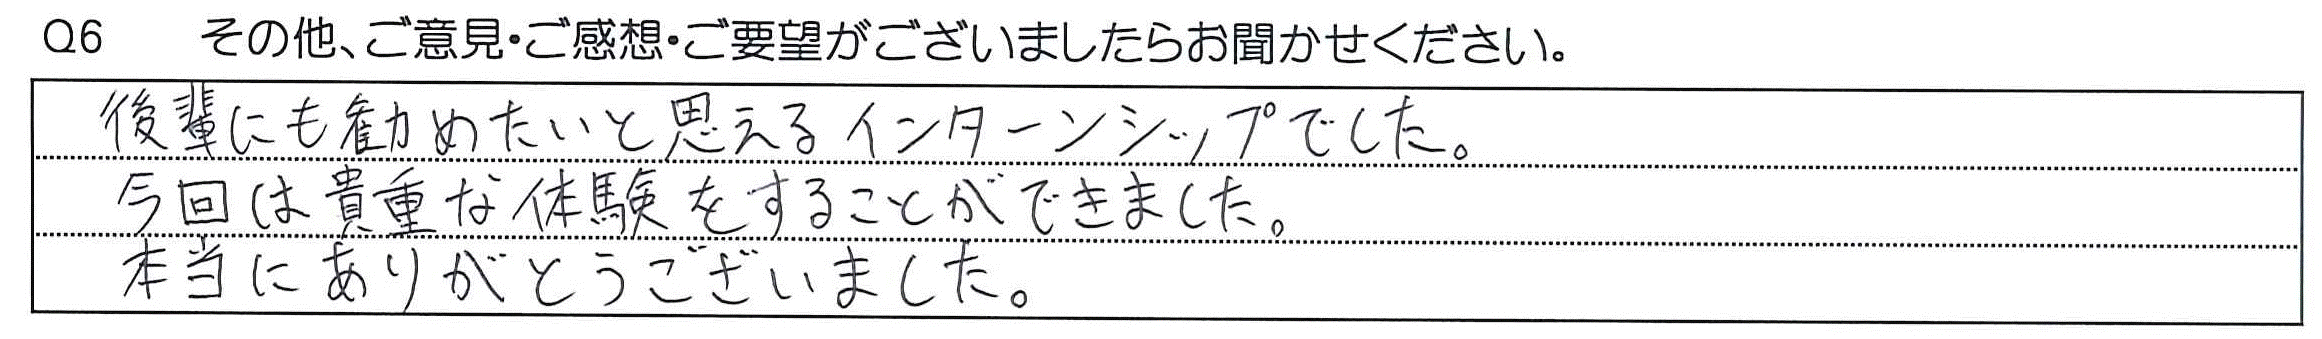 Q6 その他、ご意見・ご感想・ご要望がございましたらお聞かせください。
後輩にも勧めたいと思えるインターンシップでした。
今回は貴重な体験をすることができました。
本当にありがとうございました。